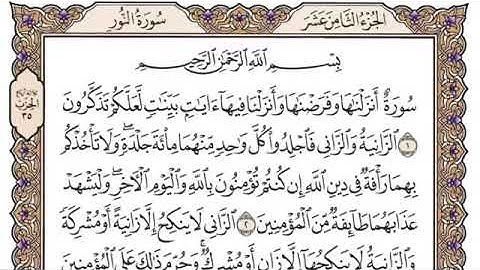 سُورَةُ النُّورِ
الجُزءُ الثَّامِنَ عَشَرَ
بِسْمِ اللَّهِ الرَّحْمَٰنِ الرَّحِيمِ
سُورَةٌ أَنزَلْنَٰهَا وَفَرَضْنَٰهَا وَأَنزَلْنَا فِيهَآ ءَايَٰتٍۭ بَيِّنَٰتٍ لَّعَلَّكُمْ تَذَكَّرُونَ
١ ٱلزَّانِيَةُ وَٱلزَّانِى فَٱجْلِدُوا۟ كُلَّ وَٰحِدٍ مِّنْهُمَا مِا۟ئَةَ جَلْدَةٍ ۖ وَلَا تَأْخُذْكُم
بِهِمَا رَأْفَةٌ فِى دِينِ ٱللَّهِ إِن كُنتُمْ تُؤْمِنُونَ بِٱللَّهِ وَٱلْيَوْمِ ٱلْءَاخِرِ ۖ وَلْيَشْهَدْ
عَذَابَهُمَا طَآئِفَةٌ مِّنَ ٱلْمُؤْمِنِينَ ٢ ٱلزَّانِى لَا يَنكِحُ إِلَّا زَانِيَةً أَوْ مُشْرِكَةً
وَٱلزَّانِيَةُ لَا يَنكِحُهَآ إِلَّا زَانٍ أَوْ مُشْرِكٌ ۚ وَحُرِّمَ ذَٰلِكَ عَلَى ٱلْمُؤْمِنِينَ
الحِزْب
٣٥